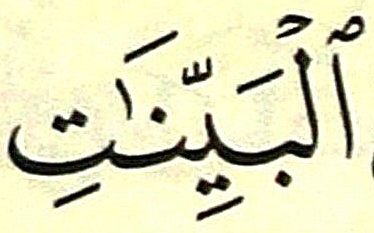 ٱلْبَيِّنَـٰتِ